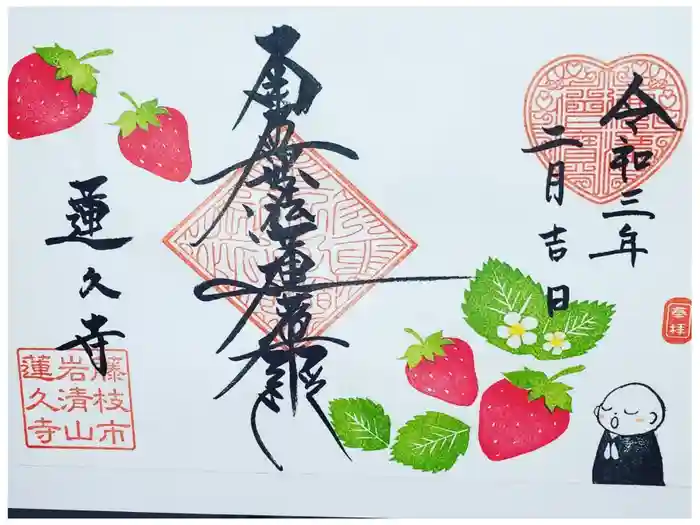 令和三年
二月吉日
奉拝
南無妙法蓮華経
蓮久寺
藤枝市
岩清山
蓮久寺